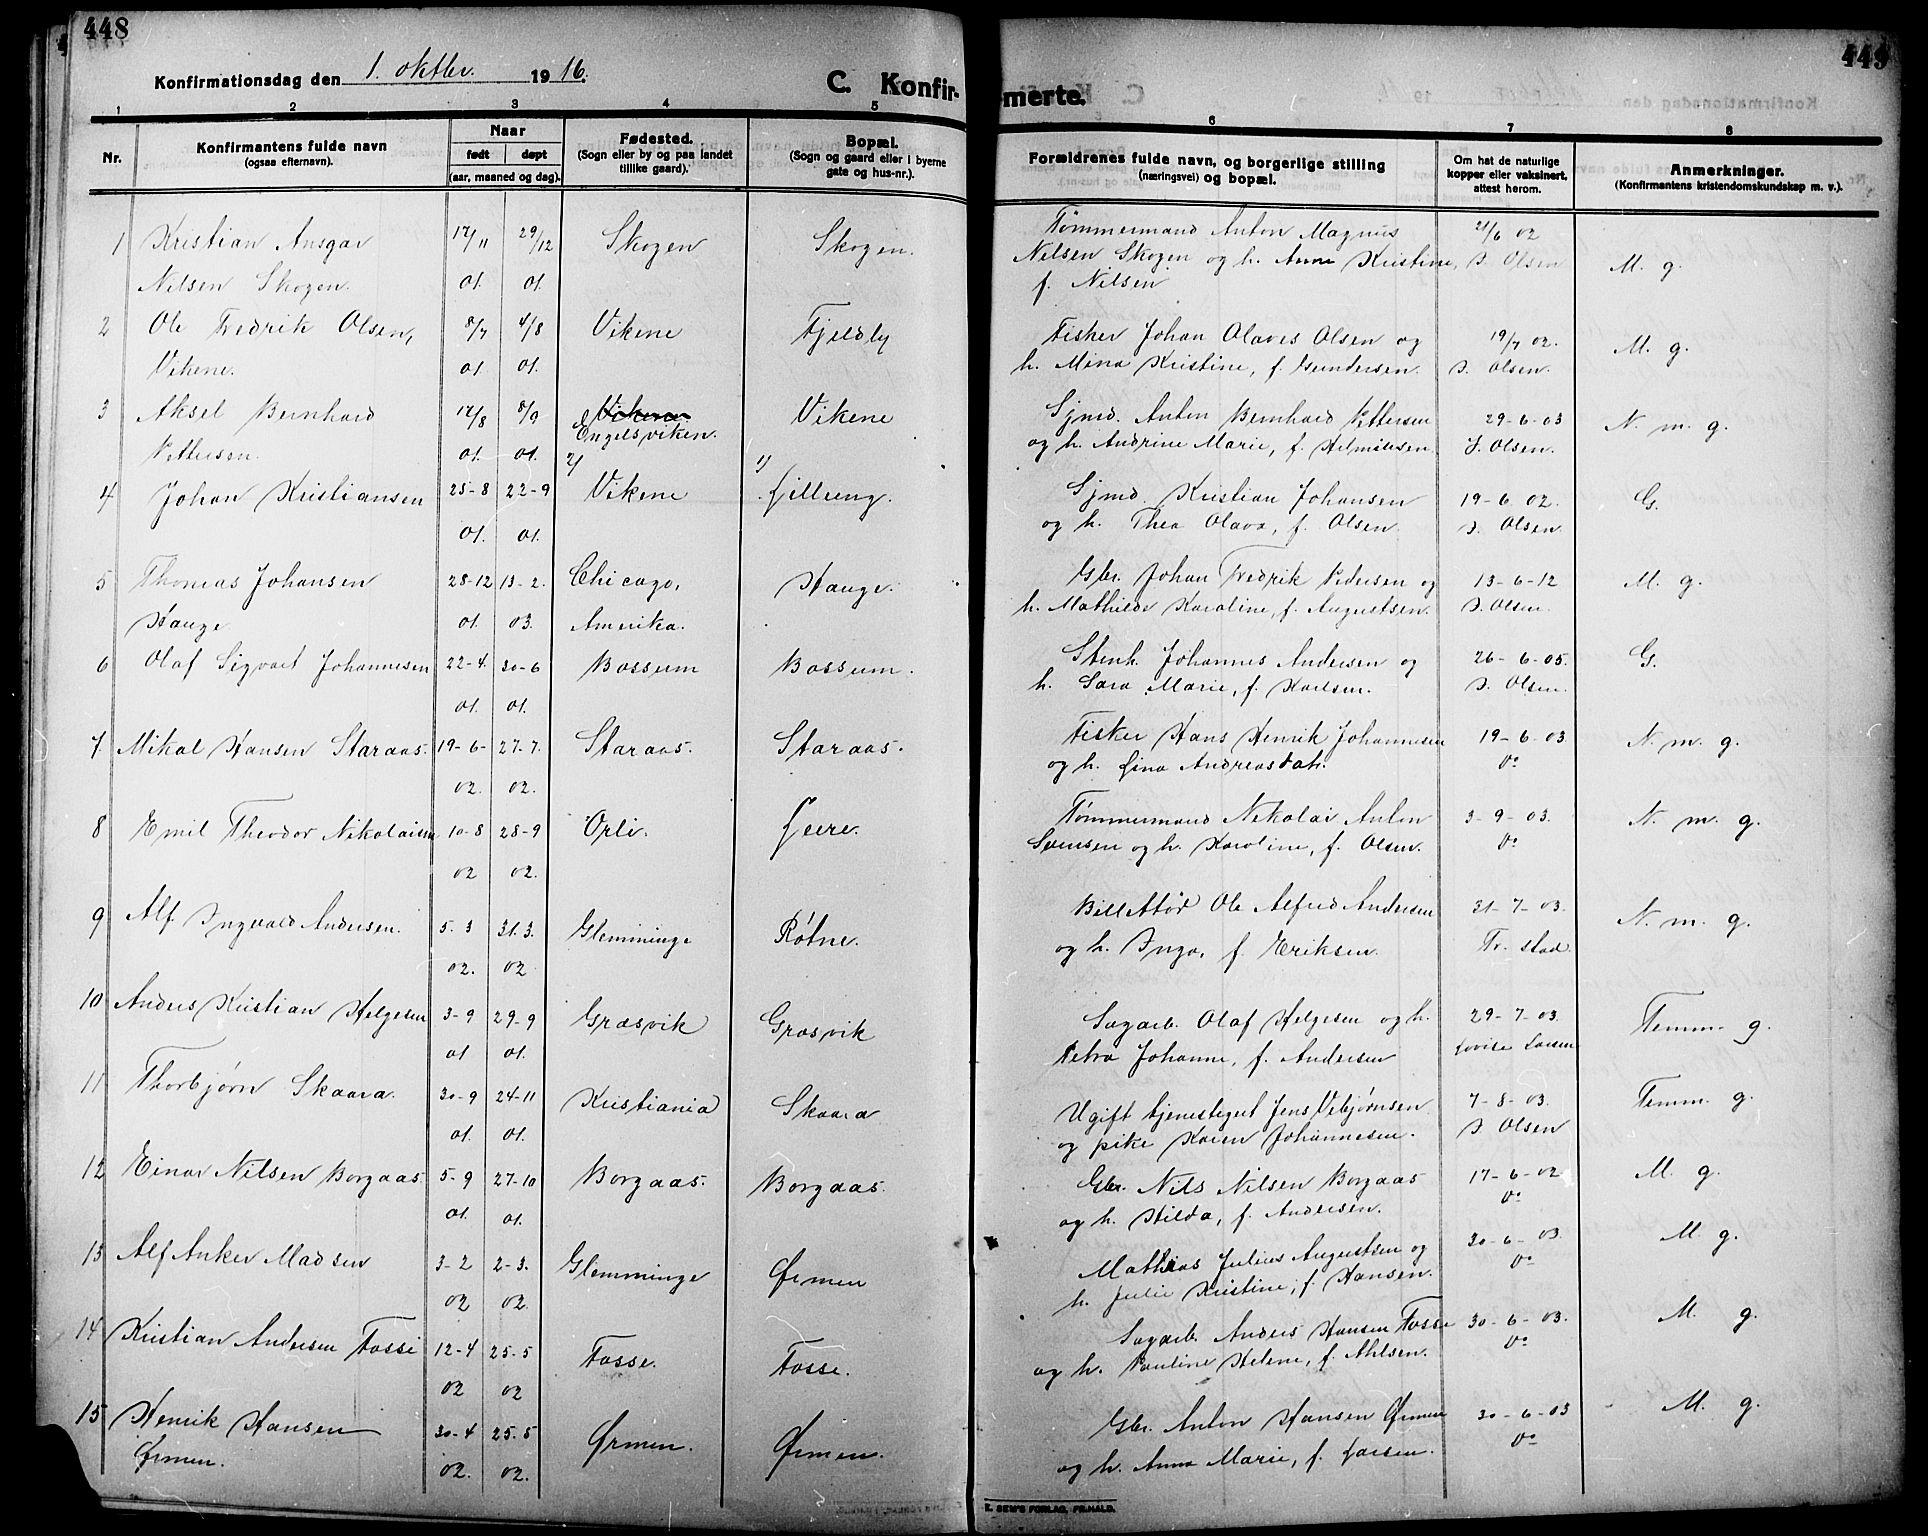 448
449
Konfirmationsdag den 1. oktbr. 1916.
C. Konfir-merte.
1 2 3 4 5 6 7 8
Nr.
Konfirmantens fulde navn
(ogsaa efternavn).
Naar
født døpt
(aar, maaned og dag).
Fødested.
(Sogn eller by og paa landet
tillike gaard).
Bopæl.
(Sogn og gaard eller i byerne
gate og hus-nr.).
Forældrenes fulde navn, og borgerlige stilling
(næringsvei) og bopæl.
Om hat de naturlige
kopper eller vaksinert,
attest herom.
Anmerkninger.
(Konfirmantens kristendomskundskap m. v.).
1 Kristian Ansgar 17/11 29/12 Skogen Skogen. Tømmermand Anton Magnus 21/6 02
Nilsen Skogen. 01. 01. Nilsen Skogen og h. Anna Kristine, J. Olsen M. g.
f. Nilsen
2 Ole Fredrik Olsen, 8/7 4/8 Vikene Fjeldby Fisker Johan Olaves Olsen og 19/7 02. M. g.
Vikene. 01. 01. h. Mina Kristine, f. Gundersen. J. Olsen.
3 Aksel Bernhard 17/8 8/9 Vikene Vikene Sjmd. Anton Bernhard Pettersen 29-6-03 N. m. g.
Engelsviken.
Pettersen. 01. 01. og h. Andrine Marie, f. Helmilsen. J. Olsen.
2/ 1/
4 Johan Kristiansen 25-8 22-9 Vikene Lilleeng. Sjmd. Kristian Johansen 19-6 02. G.
01. 01. og h. Thea Olava, f. Olsen. J. Olsen.
5 Thomas Johansen 28-12 13-2. Chicago, Hauge. Gbr. Johan Fredrik Pedersen og 13-6-12 M. g.
Hauge 01. 03. Amerika. h. Mathilde Karoline, f. Augustsen. J. Olsen.
6 Olaf Sigvart Johannesen 22-4. 30-6 Bossum Bossum. Stenh. Johannes Andersen og 26-6-05. G.
01. 01. h. Sara Marie, f. Karlsen. J. Olsen.
7 Mikal Hansen Staraas. 19-6- 27-7. Staraas. Staraas. Fisker Hans Henrik Johannesen 19-6-03 N. m. g.
02. 02. og h. Lina Andreasdatr. do
8 Emil Theodor Nikolaisen 10-8 28-9 Orli. Leere. Tømmermand Nikolai Anton 3-9-03. N. m. g.
02 02. Svensen og h. Karoline, f. Olsen. do
9 Alf Ingvald Andersen. 5.3 31.3. Glemminge Røtne. Billettør Ole Alfred Andersen 31-7-03. N. m. g.
02. 02 og h. Inga, f. Eriksen. Fr. stad
10 Anders Kristian Helgesen 3-9 29-9 Græsvik Græsvik Sagarb. Olaf Helgesen og h. 29-7-03. Temm. g.
01 01. Petra Johanne, f. Andersen Lovise Larsen
11 Thorbjørn Skaara. 30-9 24-11 Kristiania Skaara Ugift tjenestegut Jens Vebjørnsen 7-8-03. Temm. g.
01. 01. og pike Karen Johannesen. J. Olsen
12 Einar Nilsen Borgaas. 5-9 27-10 Borgaas. Borgaas. Gbr. Nils Nilsen Borgaas 17-6-02 M g.
01. 01. og h. Hilda, f. Andersen. do
13 Alf Anker Madsen 3-2 2-3. Glemminge Ørmen Mathias Julius Augustsen og 30-6-03. M. g.
02 02. h. Julie Kristine, f. Hansen. do
14 Kristian Andersen Fosse 12-4 25-5 Fosse. Fosse. Sagarb. Anders Hansen Fosse 30-6-03. M. g.
02 02 og h. Pauline Helene, f. Ahlsen. do
15 Henrik Hansen 30-4 25.5 Ørmen. Ørmen. Gbr. Anton Hansen Ørmen 30-6-03 M. g.
Ørmen. 02. 02. og h. Anna Marie, f. Larsen. do
E. SEM'S FORLAG, FR.HALD.